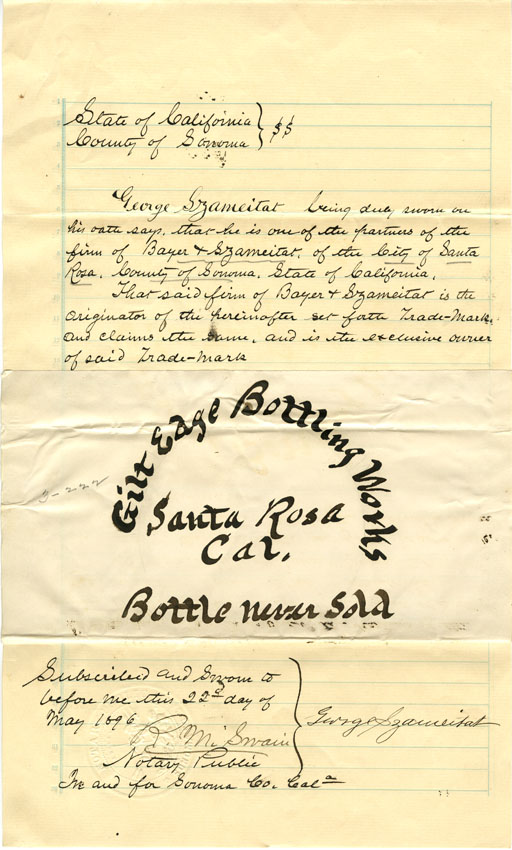 State of California
County of Sonoma } SS
George Szameitat being duly sworn on
his oath says, that he is one of the partners of the
firm of Bayer & Szameitat, of the City of Santa
Rosa, County of Sonoma, State of California,
That said firm of Bayer & Szameitat is the
originator of the hereinafter set forth Trade-Mark,
and claims the same, and is the exclusive owner
of said Trade-Mark
Gilt Edge Bottling Works
3-222
Santa Rosa
Cal.
Bottle never Sold
Subscribed and Sworn to
before me this 22d day of
May 1896
George Szameitat
R. M. Swain
Notary Public
In and for Sonoma Co. Cala